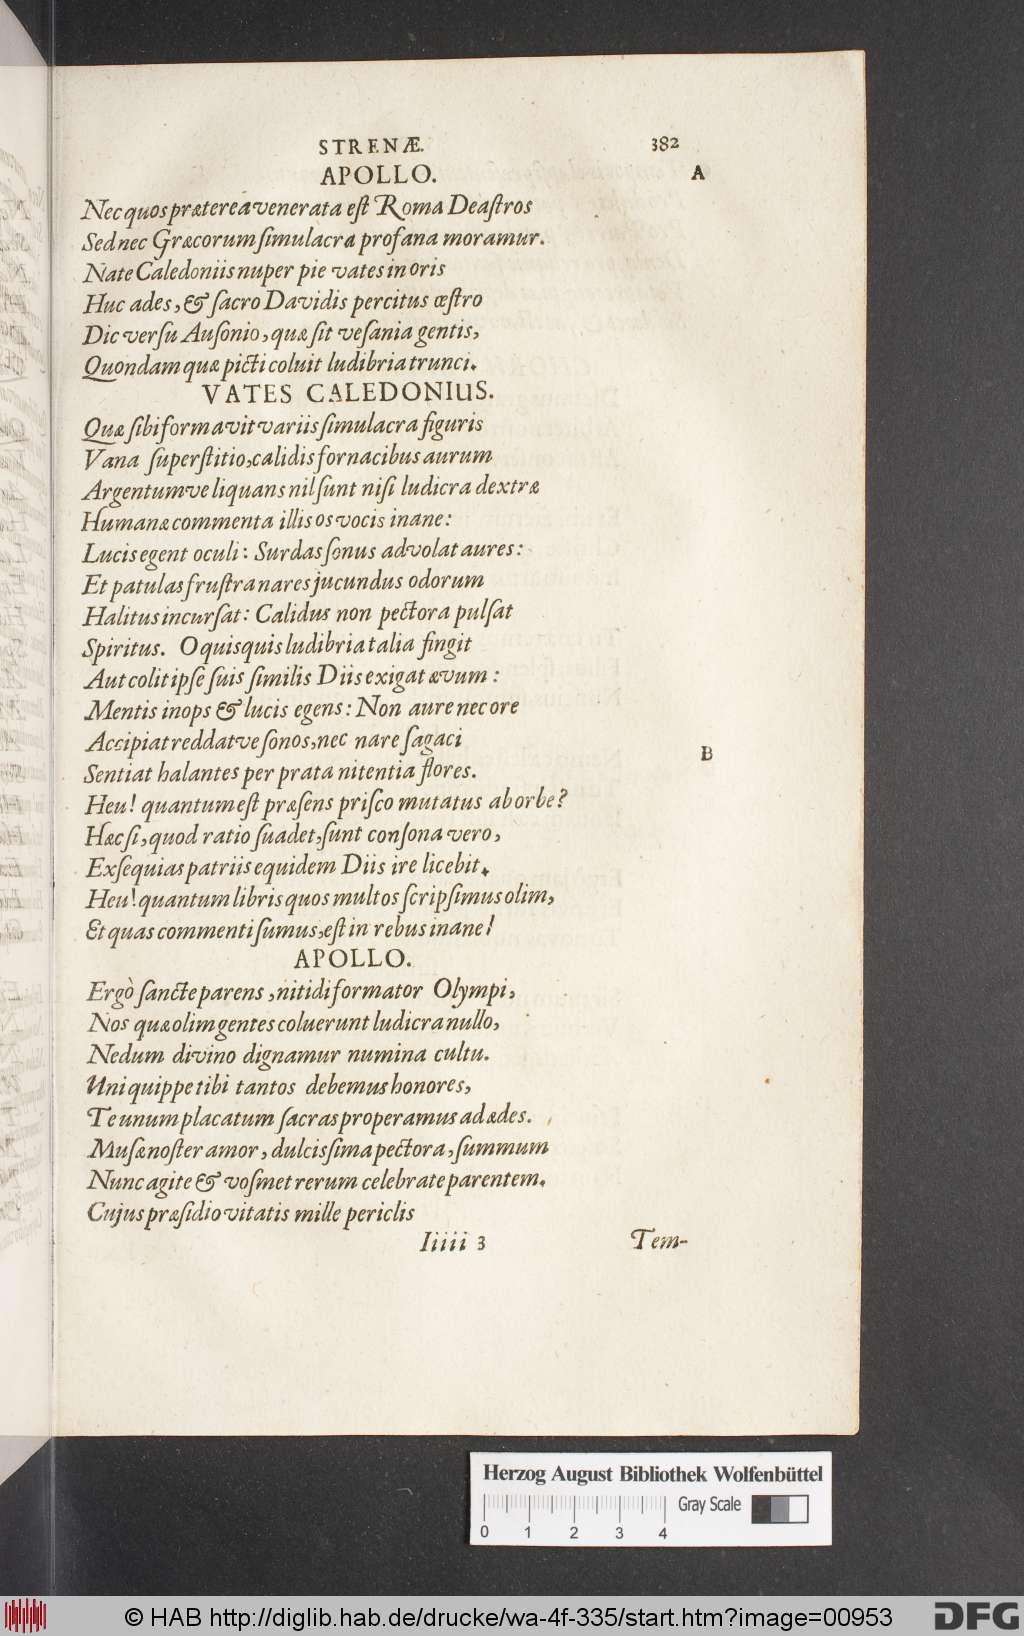 STRENÆ. 382
APOLLO. A
Nec quos prætereà venerata eſt Roma Deaſtros
Sed nec Græcorum ſimulacra profana moramur.
Nate Caledoniis nuper pie vates in oris
Huc ades, & ſacro Davidis percitus œſtro
Dic verſu Auſonio, quæ ſit veſania gentis,
Quondam quæ picti coluit ludibria trunci.
VATES CALEDONIUS.
Quæ ſibi formavit variis ſimulacra figuris
Vana ſuperſtitio, calidis fornacibus aurum
Argentumve liquans nil ſunt niſi ludicra dextræ
Humanæ commenta illis os vocis inane:
Lucis egent oculi: Surdas ſonus advolat aures:
Et patulas fruſtra nares jucundus odorum
Halitus incurſat: Calidus non pectora pulſat
Spiritus. O quisquis ludibria talia fingit
Aut colit ipſe ſuis ſimilis Diis exigat ævum:
Mentis inops & lucis egens: Non aure nec ore
Accipiat reddatve ſonos, nec nare ſagaci B
Sentiat halantes per prata nitentia flores.
Heu! quantum eſt præſens priſco mutatus ab orbe?
Hæc ſi, quod ratio ſuadet, ſunt conſona vero,
Exſequias patriis equidem Diis ire licebit.
Heu! quantum libris quos multos ſcripſimus olim,
Et quas commenti ſumus, eſt in rebus inane!
APOLLO.
Ergò ſancte parens, nitidi formator Olympi,
Nos quæ olim gentes coluerunt ludicra nullo,
Nedum divino dignamur numina cultu.
Uni quippe tibi tantos debemus honores,
Te unum placatum ſacras properamus ad ædes.
Muſæ noſter amor, dulcisſima pectora, ſummum
Nunc agite & voſmet rerum celebrate parentem.
Cujus præſidio vitatis mille periclis
Iiiii 3 Tem-
Herzog August Bibliothek Wolfenbüttel
Gray Scale
0 1 2 3 4
© HAB http://diglib.hab.de/drucke/wa-4f-335/start.htm?image=00953 DFG